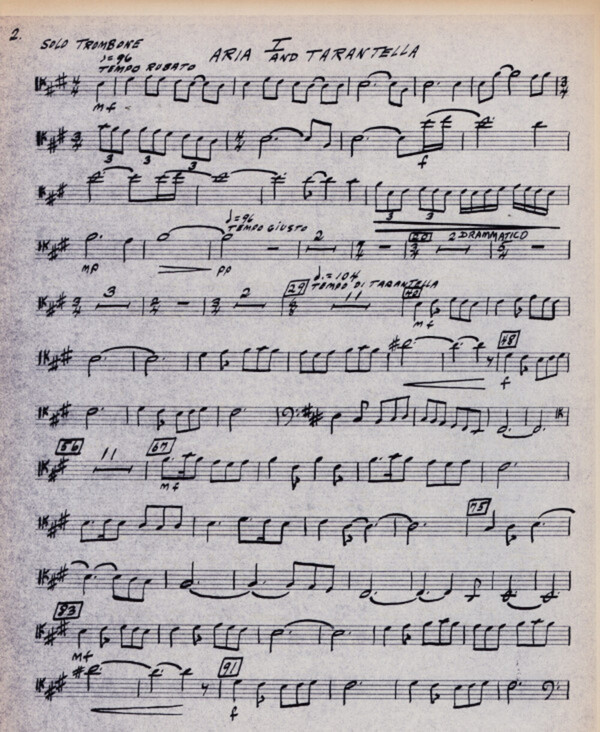 2.
SOLO TROMBONE
I
ARIA AND TARANTELLA
♩=96
TEMPO RUBATO
mf
3 3 3
f
3 3
♩=96
TEMPO GIUSTO
2
20
2 DRAMMATICO
mp pp
♩.=104
3 2 29 TEMPO DI TARANTELLA
11
mf
48
f
56 11 67
mf
75
83
mf
91
f